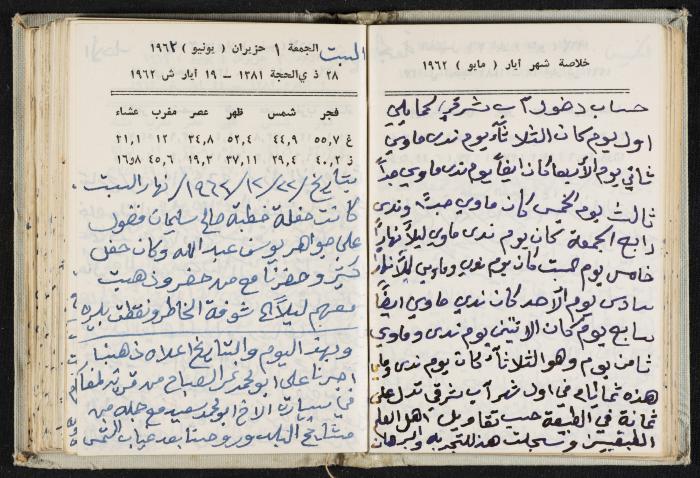 خلاصة شهر أيار ( مايو ) ١٩٦٢
حساب دخول آب شرقي كما يلي
اول يوم كان الثلاثاء يوم ندى ماوي
ثاني يوم الأربعا كان ايضاً يوم ندى ماوي جداً
ثالث يوم الخميس كان ماوي وندى
رابع الجمعة كان يوم ندى ماوي ليلاً نهاراً
خامس يوم السبت كان يوم ندى وماوي ليلاً نهار
سادس يوم الأحد كان ندي ماوي ايضاً
سابع يوم كان الاثنين يوم ندى وماوى
ثامن يوم وهو الثلاثاء كان يوم ندى وماوي
هذه ثمانية ايام في اول شهر آب شرقي تدل على
ثمانة في الطبيعة حسب تقاويل اهل العلم
الطبقيين وتسجلت هذه للتجربه والبرهان
السبت
الجمعة ١ حزيران ( يونيو ) ١٩٦٢
٢٨ ذي الحجة ١٣٨١ – ١٩ أيار ش ١٩٦٢
فجر شمس ظهر عصر مغرب عشاء
غ ٥٥,٧ ٤٤,٩ ٥٢,٤ ٣٤,٨ ١٢ ٢١,١
ز ٤٠,٢ ٢٩,٤ ٣٧,١١ ١٩,٣ ٤٥,٦ ١٦,٨
بتاريخ /٢٢/ ١٢/ ١٩٦٢/ نهار السبت
كانت حفلة خطبة صالح سليمان فضول
على جواهر يوسف عبد الله وكان حفل
كبير وحضرنا مع من حضر وذهبت
معهم ليلاً شوفة الخاطر ونقطت بليره
وبهذا اليوم والتاريخ اعلاه ذهبنا
اجرنا على ابو محمد الصباح من قرية
في سيارة الأخ ابو محمد سعيد مع جمله من
مشايخ البلد وروحنا بعد غياب الشمس